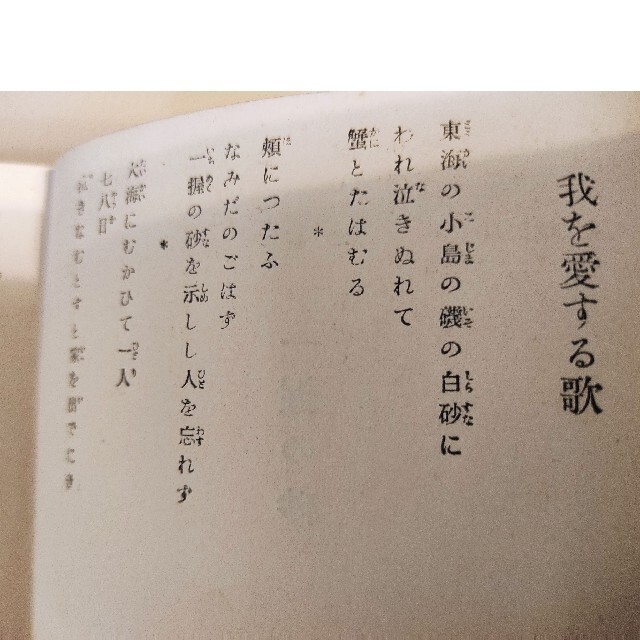 我を愛する歌
東海の小島の磯の白砂に
われ泣きぬれて
蟹とたはむる
*
頬につたふ
なみだのごはず
一握の砂を示しし人を忘れず
*
大海にむかひて一人
七八日
泣きなむとすと家を出でにき